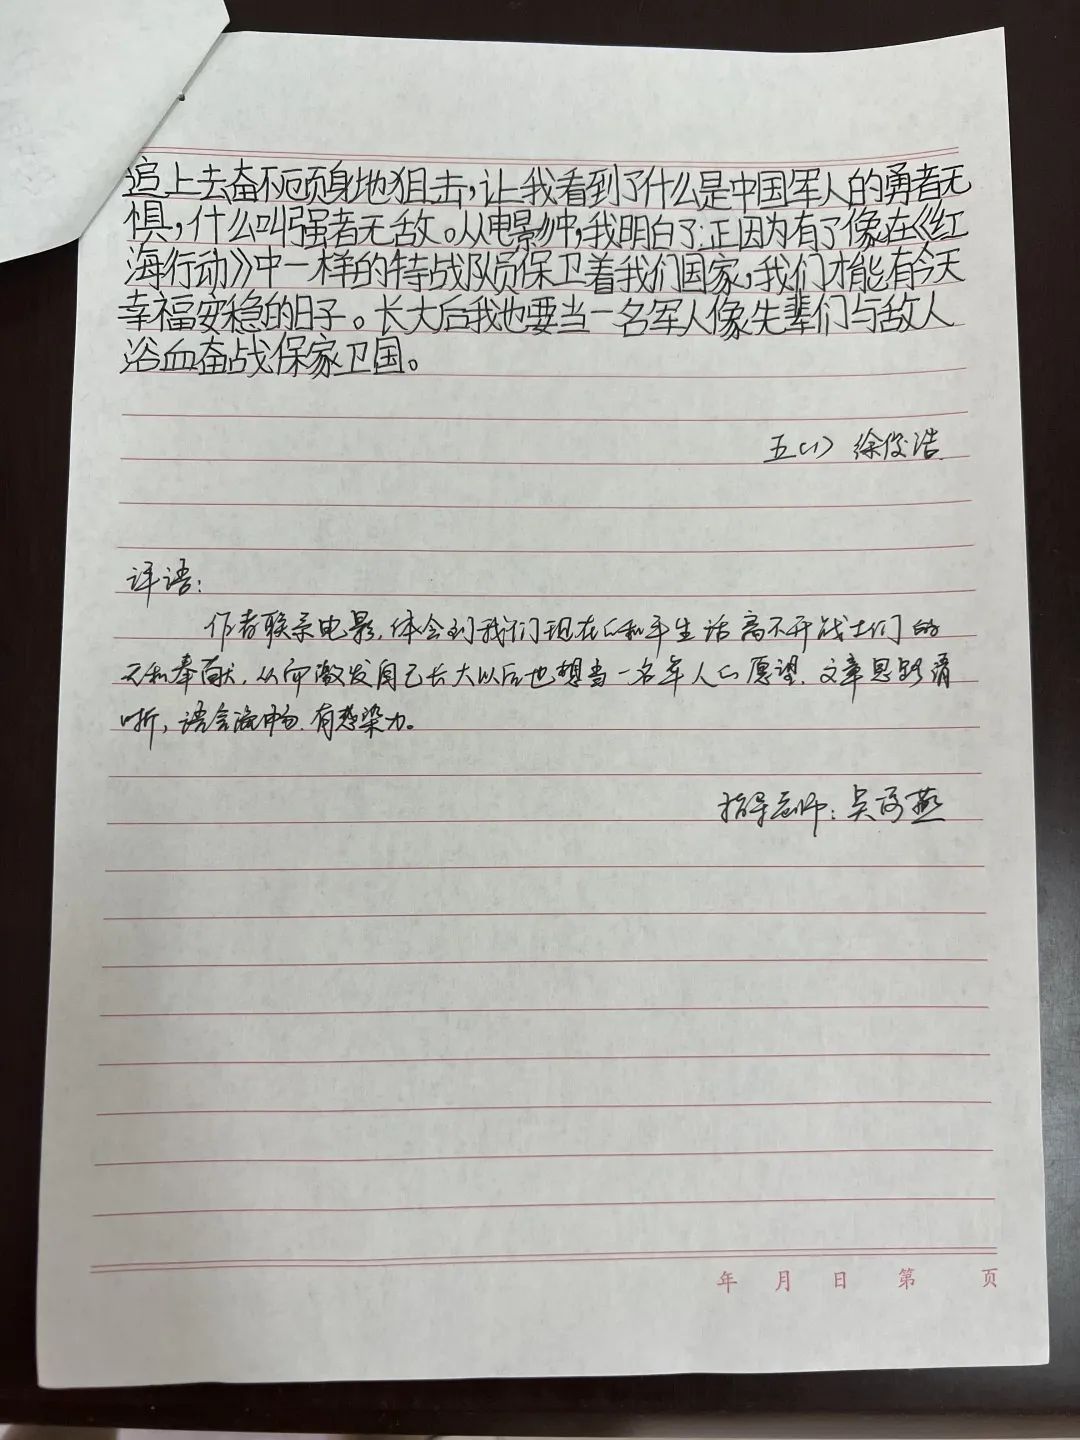 追上去奋不顾身地狙击，让我看到了什么是中国军人的勇者无
惧，什么叫强者无敌。从电影中，我明白了：正因为有了像在《红
海行动》中一样的特战队员保卫着我们国家，我们才能有今天
幸福安稳的日子。长大后我也要当一名军人像先辈们与敌人
浴血奋战保家卫国。
五(1) 徐俊浩
评语：
作者联系电影，体会到我们现在的和平生活离不开战士们的
无私奉献，从而激发自己长大以后也想当一名军人的愿望．文章思路清
晰，语言流畅．有感染力。
指导老师：吴 燕
年 月 日 第 页